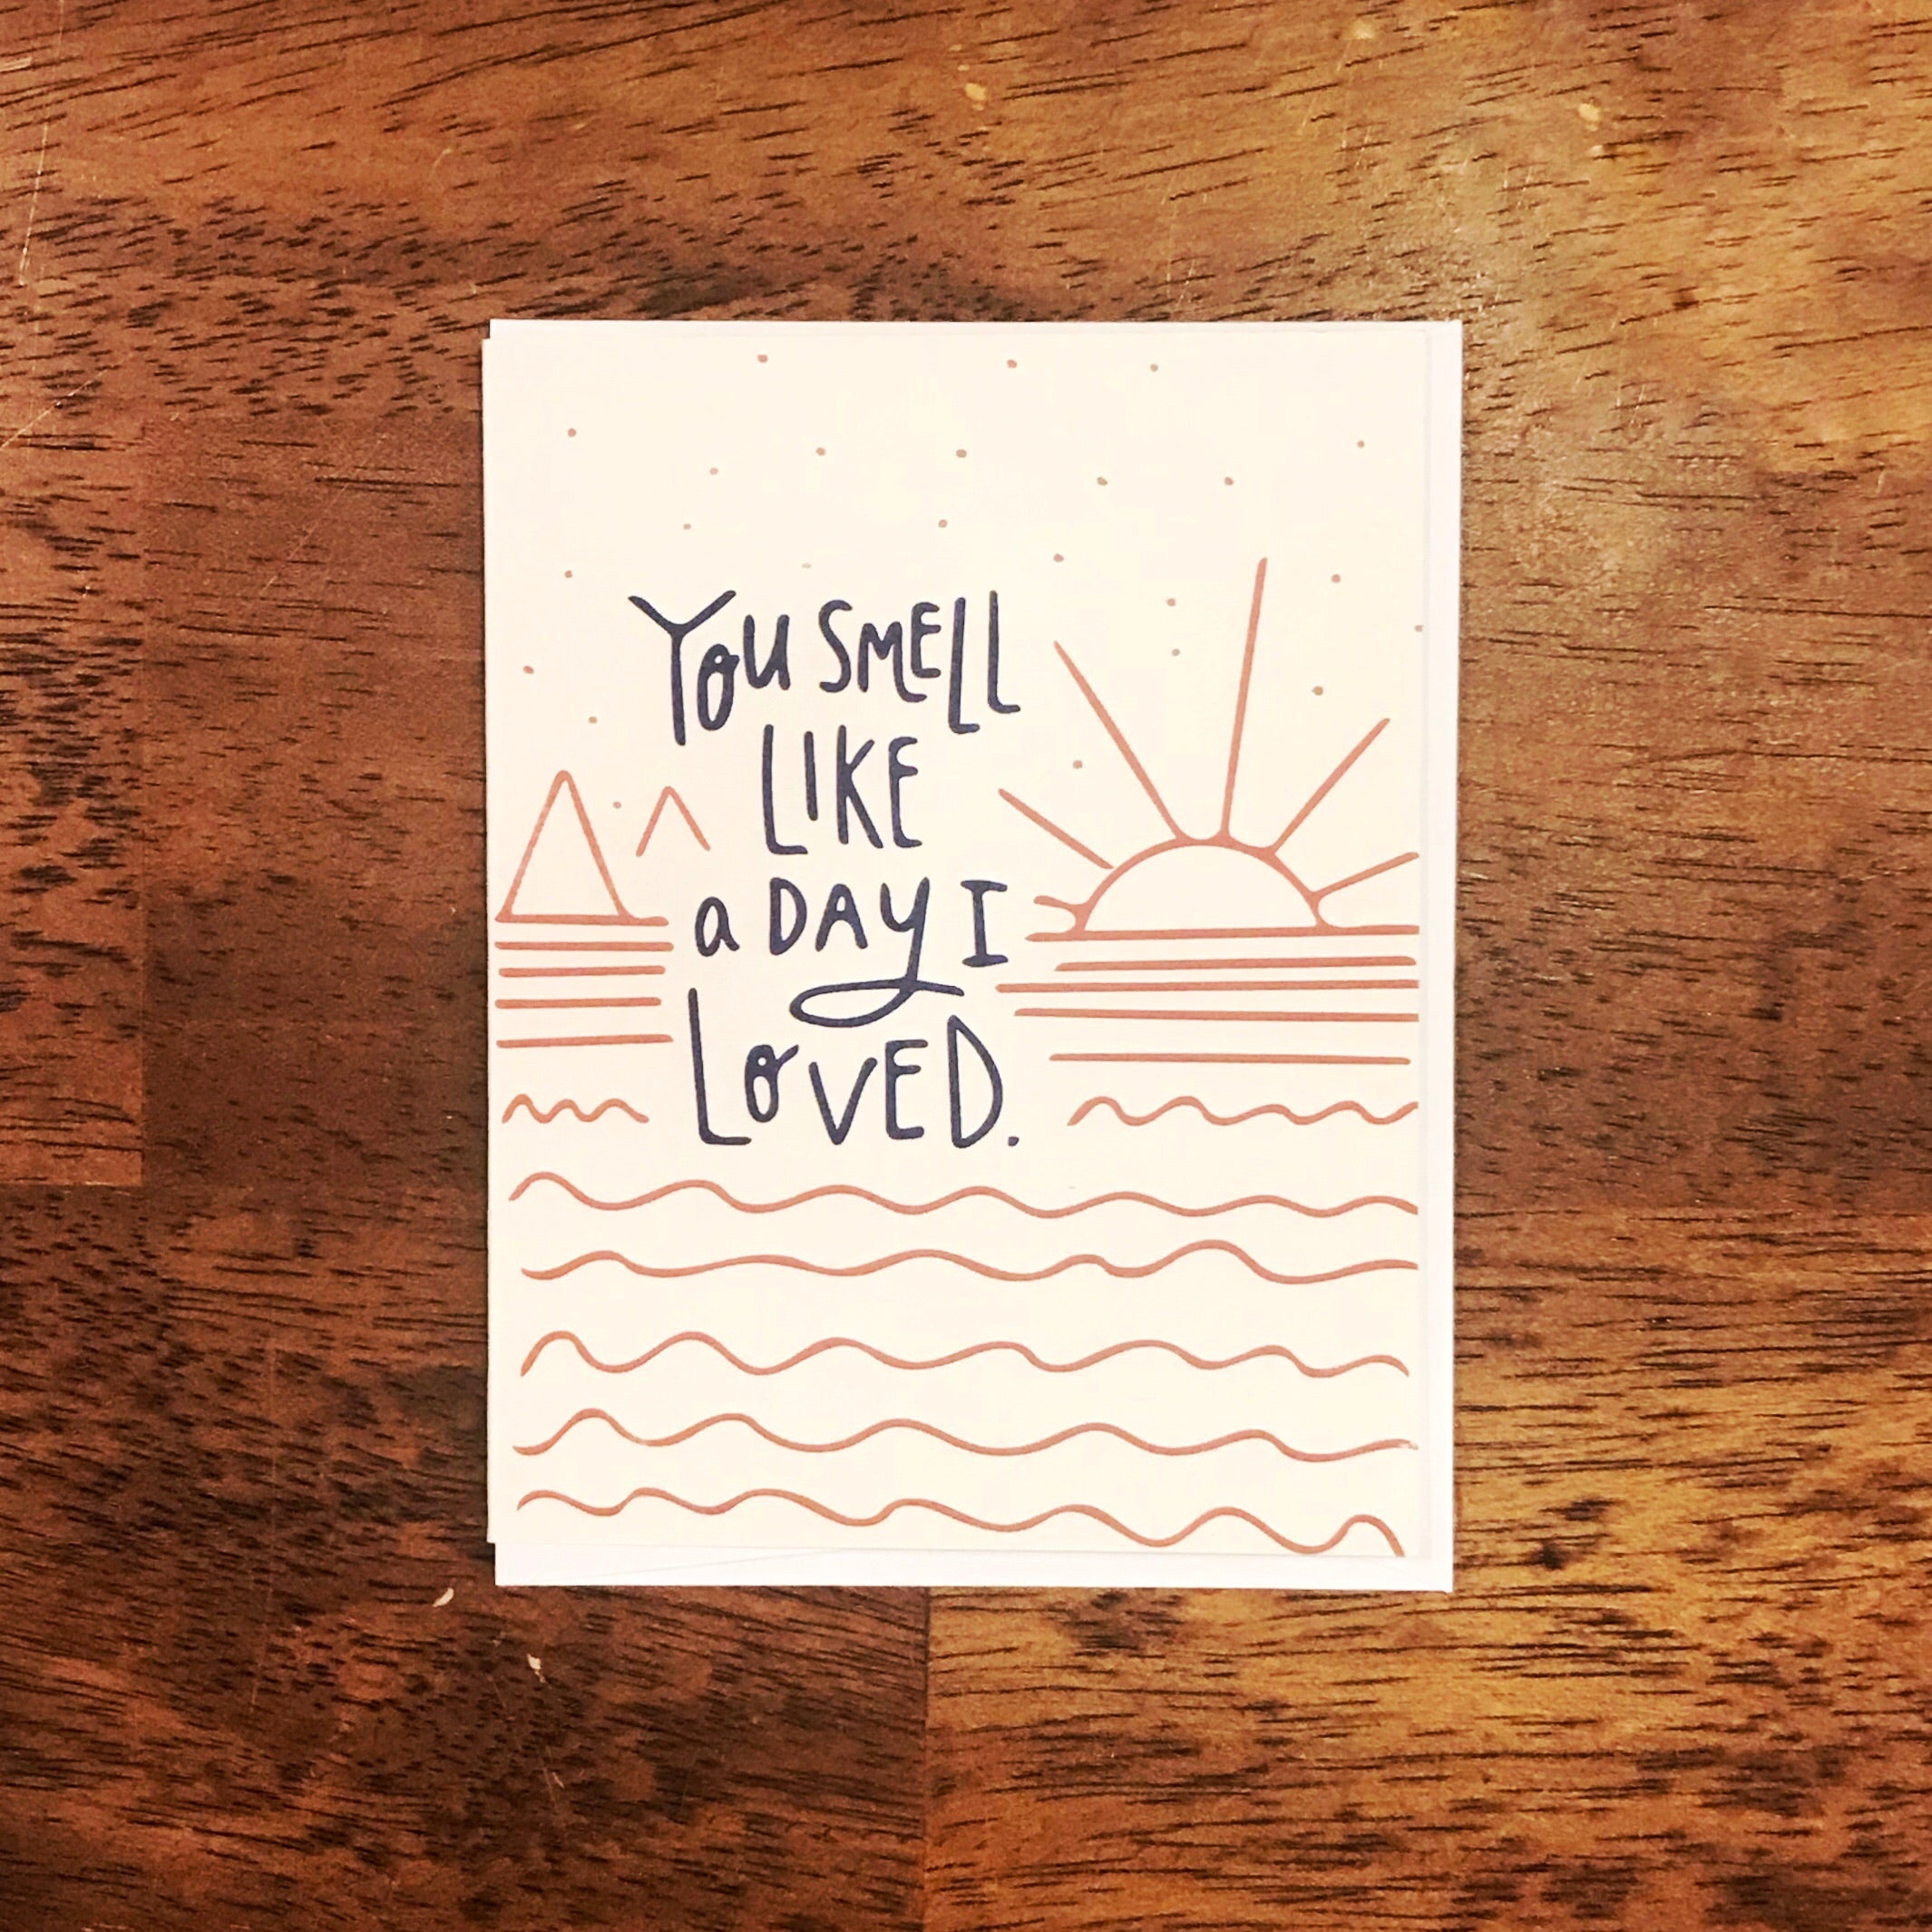 You SMELL
LIKE
a DAY I
LoVED.